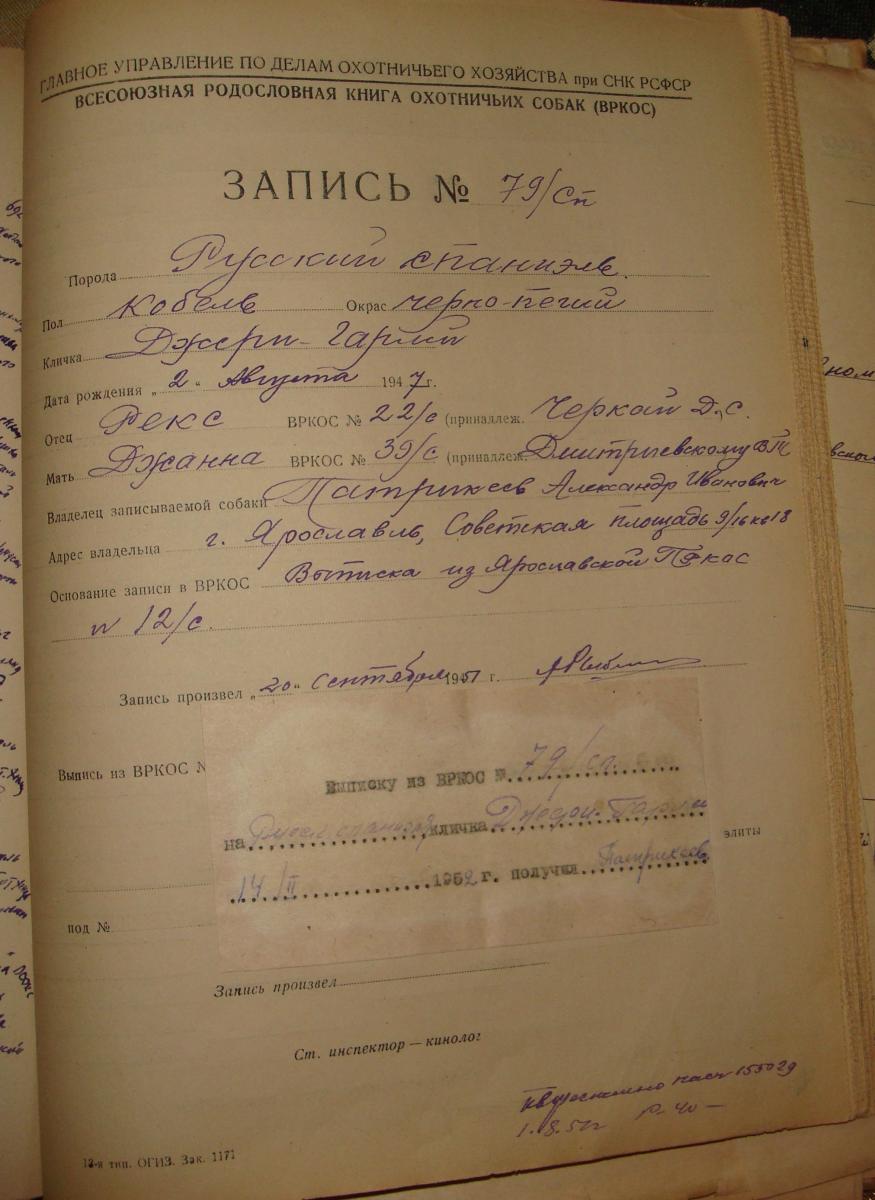 ГЛАВНОЕ УПРАВЛЕНИЕ ПО ДЕЛАМ ОХОТНИЧЬЕГО ХОЗЯЙСТВА при СНК РСФСР
ВСЕСОЮЗНАЯ РОДОСЛОВНАЯ КНИГА ОХОТНИЧЬИХ СОБАК (ВРКОС)
ЗАПИСЬ № 79/сп
Порода Русский спаниэль.
Пол кобель Окрас черно-пегий
Кличка Джери-Гарри
Дата рождения „2" Августа 1947 г.
Отец Рекс ВРКОС № 22/с (принадлеж. Черкой Д. С.
Мать Джанна ВРКОС № 39/с (принадлеж. Дмитриевскому
Владелец записываемой собаки Патрикеев Александр Иванович
Адрес владельца г. Ярославль, Советская площадь 9/16 кв 18
Основание записи в ВРКОС Выписка из Ярославской
№ 12/с.
Запись произвел „20" сентября 1951 г.
Выпись из ВРКОС №
Выписку из ВРКОС № 79/сп.
на кличка Джери-Гарри
14/II 1952 г. получил Патрикеев
элиты
под №
Запись произвел
Ст. инспектор — кинолог
155029
1.18.51г р-40-
13-я тип. ОГИЗ. Зак. 1171